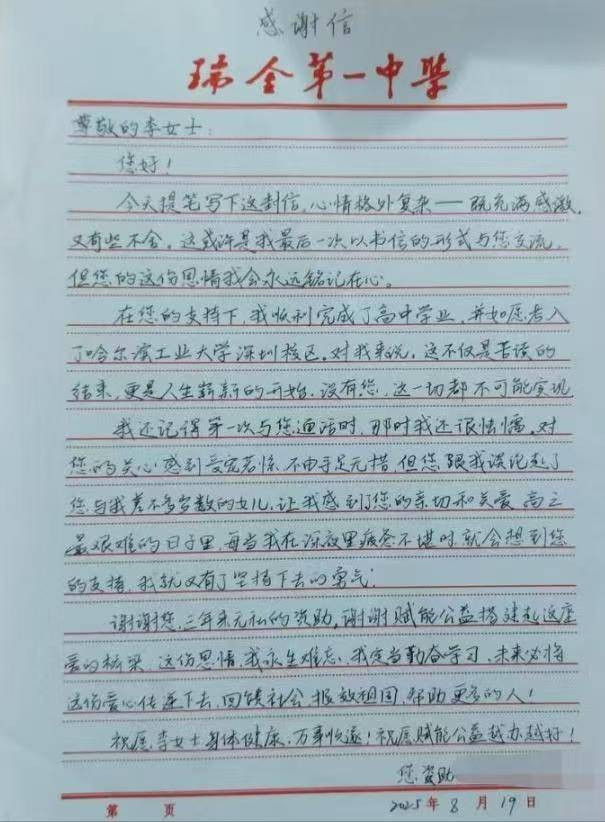 感谢信
瑞金第一中学
尊敬的李女士：
您好！
今天提笔写下这封信，心情格外复杂——既充满感激，
又有些不舍。这或许是我最后一次以书信的形式与您交流，
但您的这份恩情我会永远铭记在心。
在您的支持下，我顺利完成了高中学业，并如愿考入
了哈尔滨工业大学深圳校区。对我来说，这不仅是苦读的
结束，更是人生崭新的开始，没有您，这一切都不可能实现
我还记得第一次与您通话时，那时我还很怯懦，对
您的关心感到受宠若惊，不由手足无措，但您跟我谈论起了
您与我差不多岁数的女儿，让我感到了您的亲切和关爱。高三
最艰难的日子里，每当我在深夜里疲惫不堪时，就会想到您
的支持，我就又有了坚持下去的勇气！
谢谢您，三年来无私的资助，谢谢赋能公益搭建起这座
爱的桥梁，这份恩情，我永生难忘，我定当勤奋学习，未来必将
这份爱心传递下去，回馈社会，报效祖国，帮助更多的人！
祝愿李女士身体健康，万事顺遂！祝愿赋能公益越办越好！
您资助
第 页 2025年8月19日